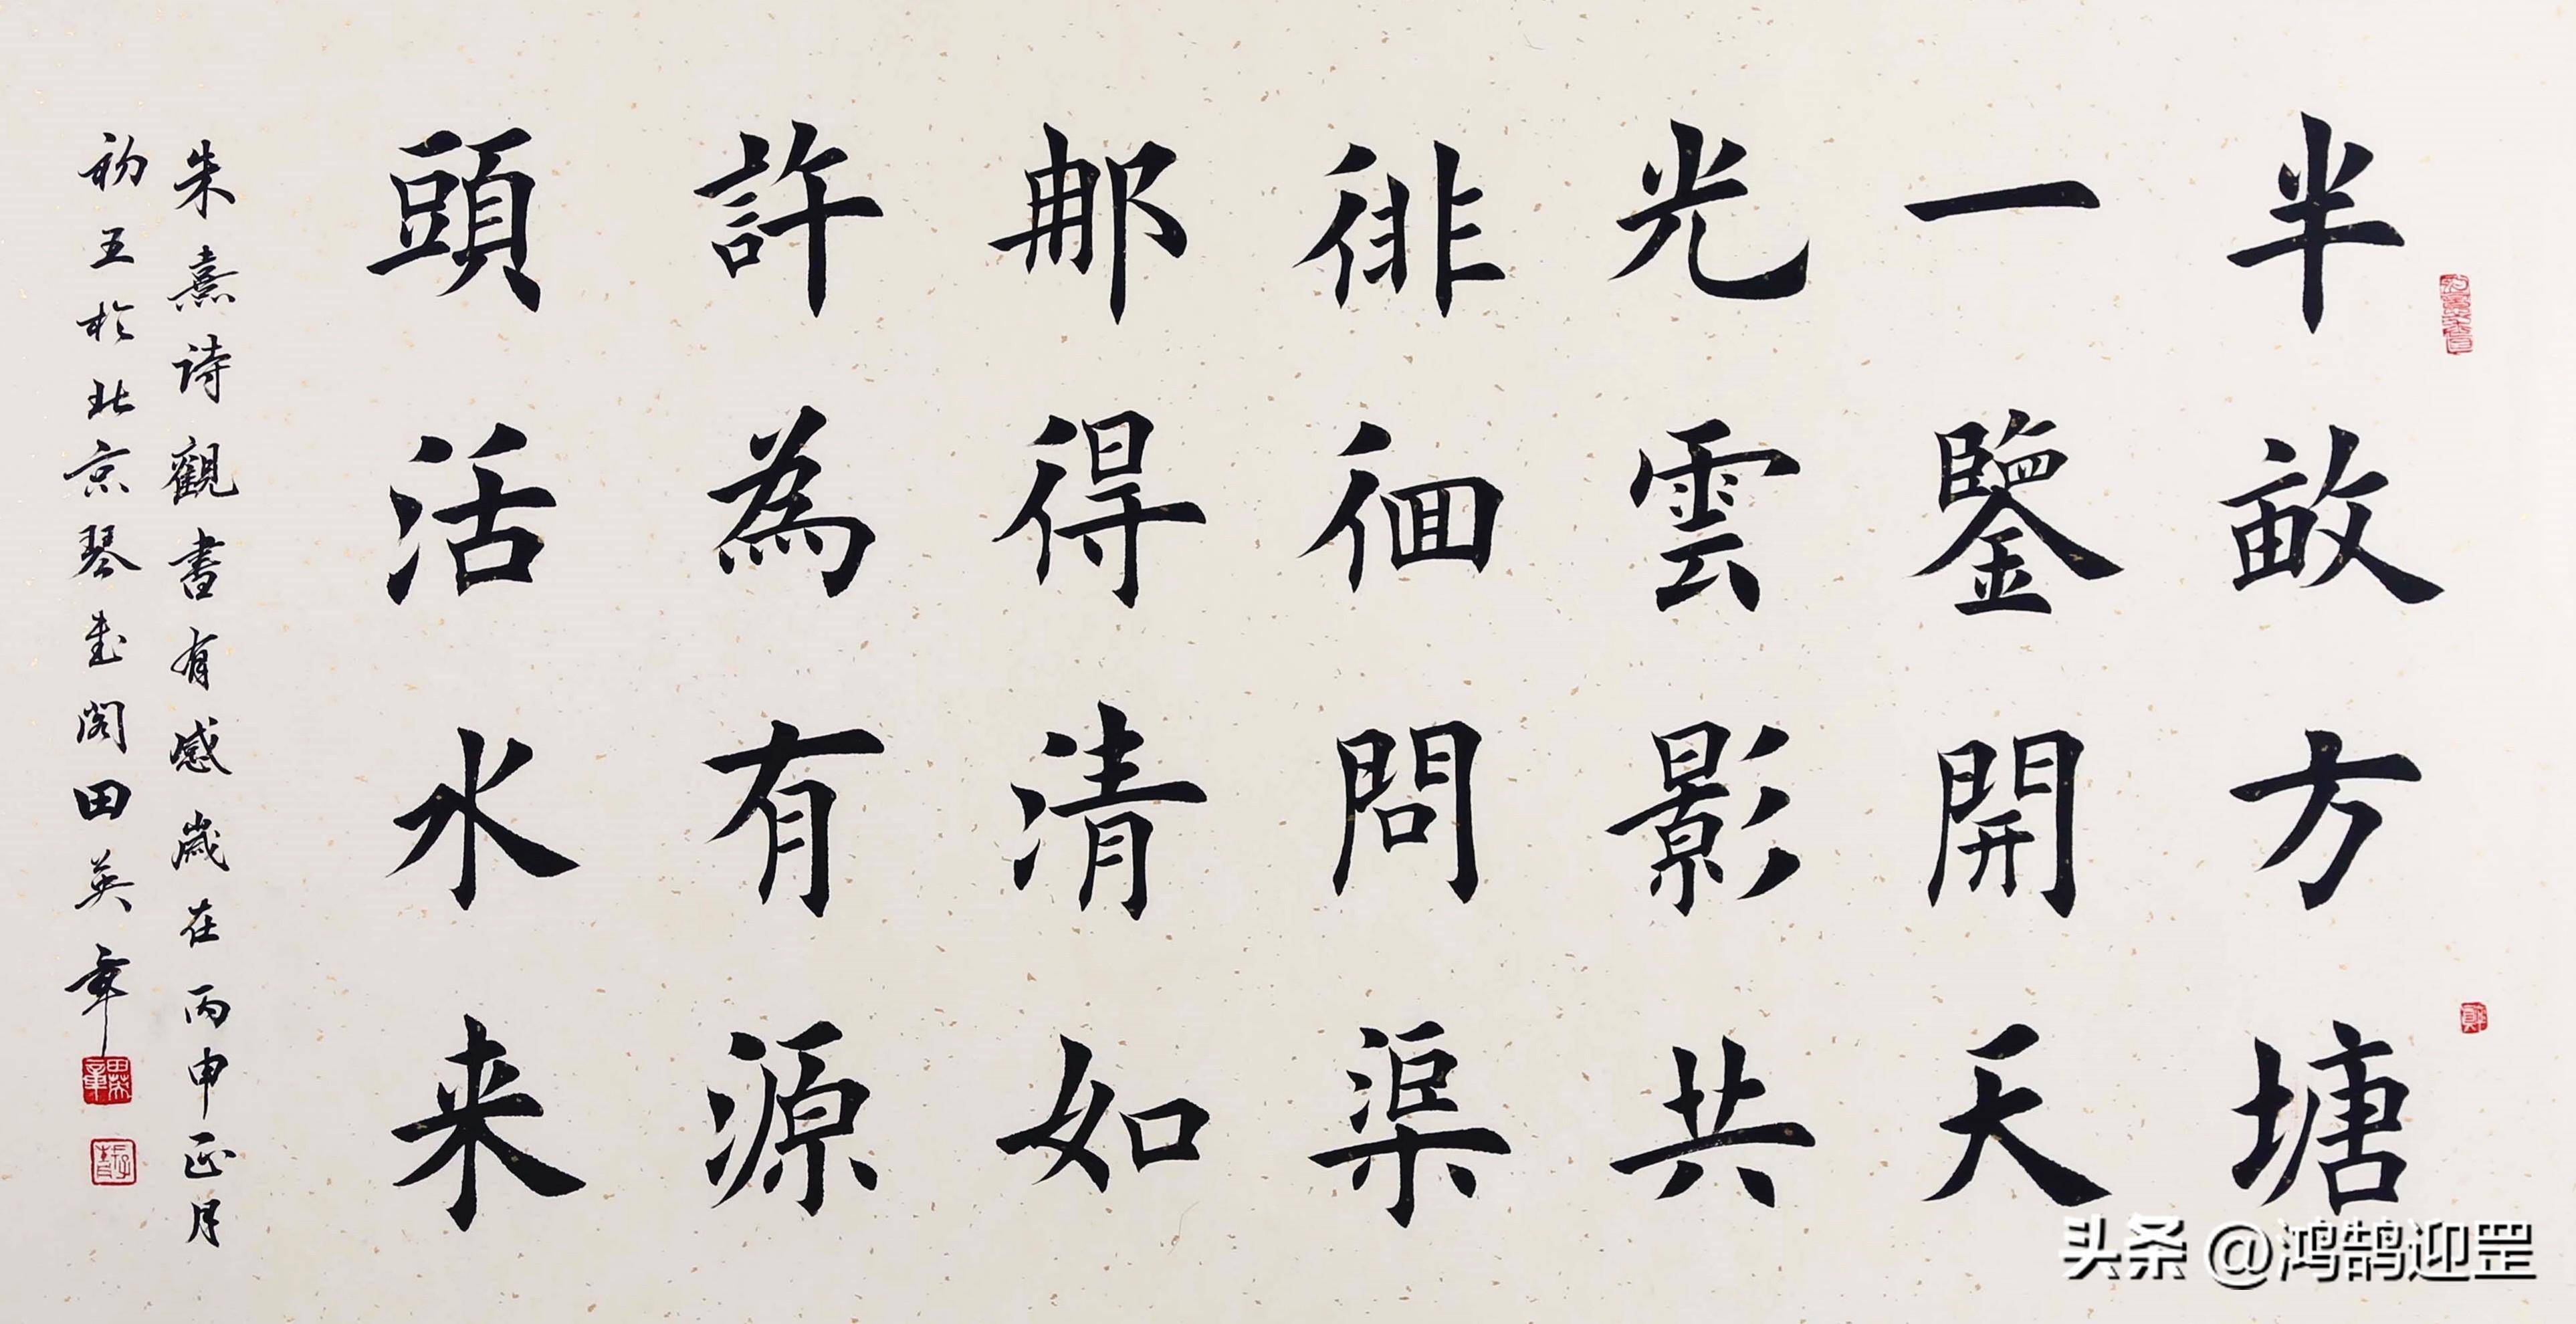 半畝方塘
一鑒開天
光雲影共
徘徊問渠
那得清如
許為有源
頭活水来
朱熹詩觀書有感歲在丙申正月
初五於北京琴墨閣田英章
頭条 @鸿鹄迎罡